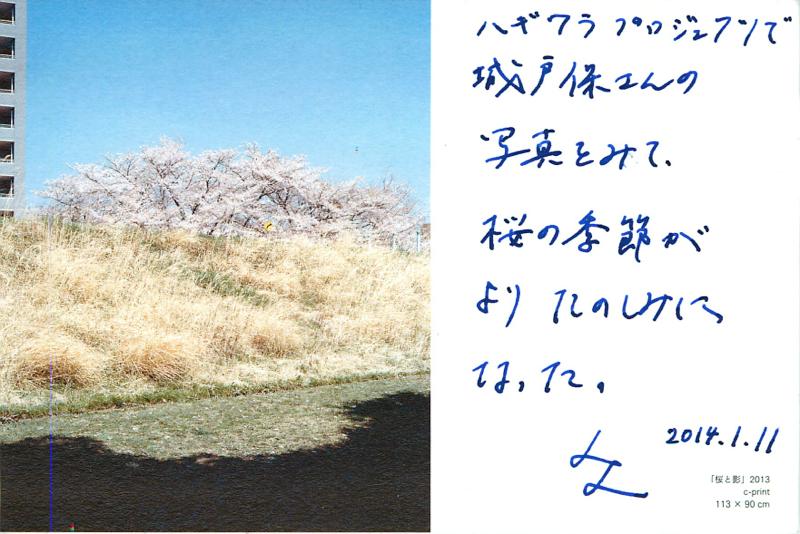 ハギワラプロジェクツで
城戸保さんの
写真をみて、
桜の季節が
よりたのしみに、
なった。
2014.1.11
「桜と影」2013
c-print
113 × 90 cm